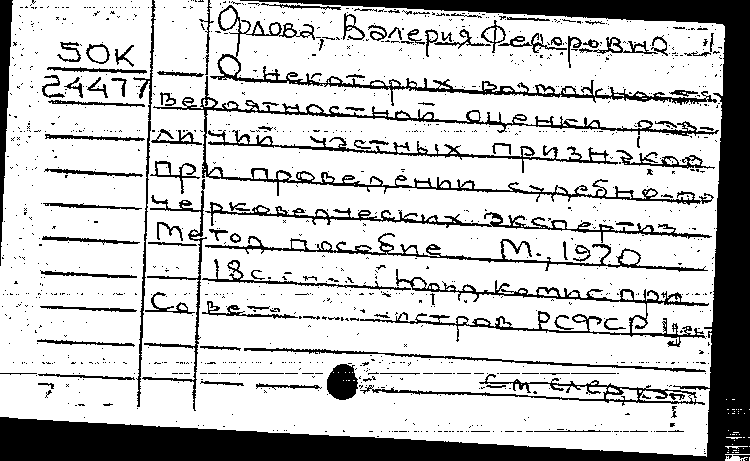 Орлова, Валерия Федоровна
50К
24477
О некоторых возможностях
вероятностной оценки раз-
личий частных признаков
при проведении судебно-по
черковедческих экспертиз
Метод пособие М., 1970
18с. (Юрид. комис. при
Совете министров РСФСР Цент
См. след. карт